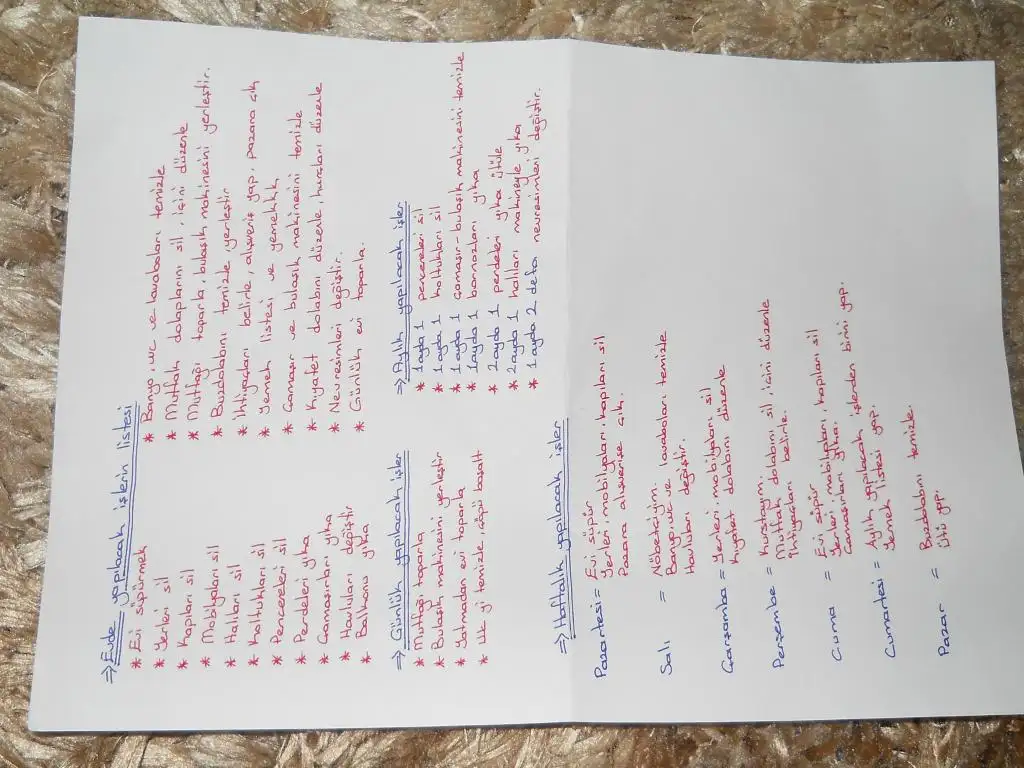 ⇒ Evde yapılacak işlerin listesi
* Evi süpürmek
* Yerleri sil
* Kapıları sil
* Mobilyaları sil
* Halıları sil
* Koltukları sil
* Pencereleri sil
* Perdeleri yıka
* Çamaşırları yıka
* Havluları değiştir
* Balkonu yıka
* Banyo, wc ve lavaboları temizle
* Mutfak dolaplarını sil, içini düzenle
* Mutfağı toparla, bulaşık makinesini yerleştir.
* Buzdolabını temizle, yerleştir
* İhtiyaçları belirle, alışveriş yap, pazara çık
* Yemek listesi ve yemeklik
* Çamaşır ve bulaşık makinesini temizle
* Kıyafet dolabını düzenle, hurçları düzenle
* Nevresimleri değiştir.
* Günlük evi toparla.
⇒ Günlük yapılacak işler
* Mutfağı toparla
* Bulaşık makinesini yerleştir
* Yatmadan evi toparla
* WC yi temizle, çöpü boşalt
⇒ Aylık yapılacak işler
* 1 ayda 1 pencereleri sil
* 1 ayda 1 koltukları sil
* 1 ayda 1 çamaşır-bulaşık makinesini temizle
* 1 ayda 1 bornozları yıka
* 2 ayda 1 perdeleri yıka ütüle
* 2 ayda 1 halıları makineyle yıka
* 1 ayda 2 defa nevresimleri değiştir.
⇒ Haftalık yapılacak işler
Pazartesi = Evi süpür
Yerleri, mobilyaları, kapıları sil
Pazara alışverişe çık.
Salı = Nöbetçiyim.
Banyo, wc ve lavaboları temizle
Havluları değiştir.
Çarşamba = Yerleri, mobilyaları sil
Kıyafet dolabını düzenle
Perşembe = Kurstayım.
Mutfak dolabını sil, içini düzenle
İhtiyaçları belirle.
Cuma = Evi süpür
Yerleri, mobilyaları, kapıları sil
Çamaşırları yıka.
Cumartesi = Aylık yapılacak işlerden birini yap.
Yemek listesi yap.
Pazar = Buzdolabını temizle.
Ütü yap.